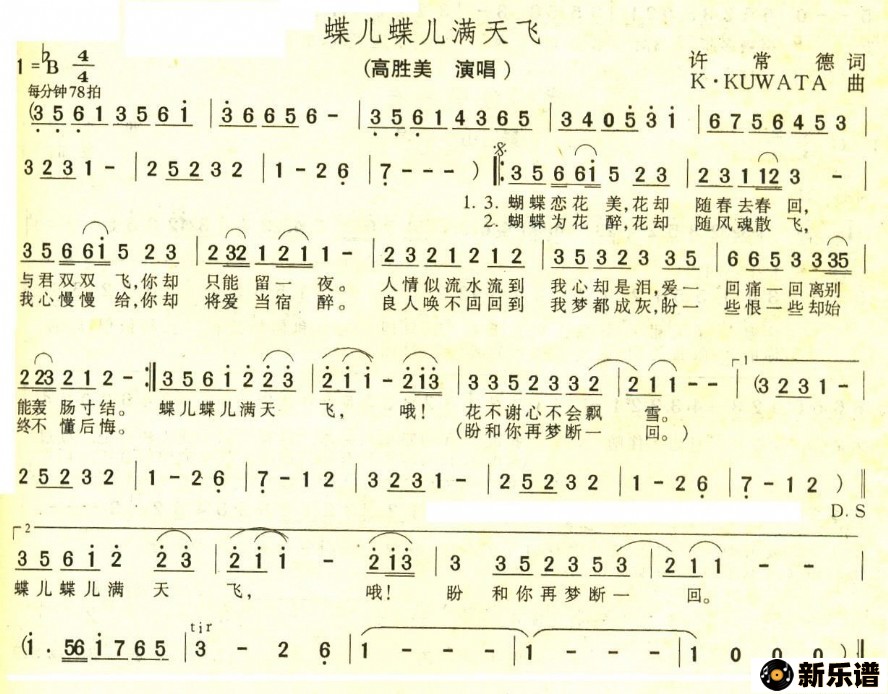 蝶儿蝶儿满天飞
1=♭B 4/4
(高胜美 演唱)
许常德 词
K·KUWATA 曲
每分钟78拍
(3561 3561 | 36656- | 3561 4365 | 340531 | 6756453 |
3231- | 25232 | 1-26 | 7---) 𝄋 ‖: 35661523 | 231123- |
1.3. 蝴蝶恋花 美,花却 随春去春 回,
2. 蝴蝶为花 醉,花却 随风魂散 飞,
35661523 | 2321211- | 23212123 | 35323235 | 665353335 |
与君双双 飞,你却 只能 留一 夜。 人情似流水流到 我心却是泪,爱一 回痛一回离别
我心慢慢 给,你却 将爱 当宿 醉。 良人唤不回回到 我梦都成灰,盼一 些恨一些却始
223212- :‖ 35612223 | 211-213 | 33523332 | 211-- | 1 (3231- |
能轰 肠寸结。 蝶儿蝶儿满天 飞, 哦! 花不谢心不会飘 雪。
终不 懂后悔。 (盼和你再梦断一 回。)
25232 | 1-26 | 7-12 | 3231- | 25232 | 1-26 | 7-12) ‖
D.S
2
35612 23 | 211 - 213 3 | 352353 | 211 -- |
蝶儿蝶儿满 天 飞, 哦! 盼 和你再梦断一 回。
(1·561765 | tjr 3-26 | 1--- | 1--- | 1000 ‖
新乐谱